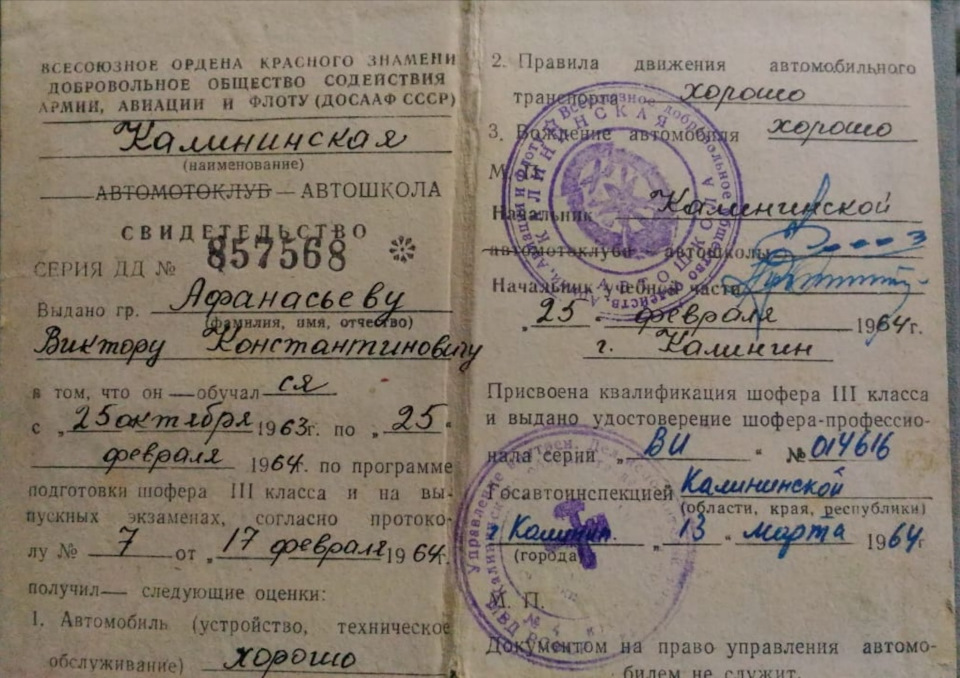 ВСЕСОЮЗНОЕ ОРДЕНА КРАСНОГО ЗНАМЕНИ
ДОБРОВОЛЬНОЕ ОБЩЕСТВО СОДЕЙСТВИЯ
АРМИИ, АВИАЦИИ И ФЛОТУ (ДОСААФ СССР)
Калининская
(наименование)
АВТОМОТОКЛУБ — АВТОШКОЛА
СВИДЕТЕЛЬСТВО
СЕРИЯ ДД № 857568
Выдано гр. Афанасьеву
(фамилия, имя, отчество)
Виктору Константиновичу
в том, что он — обучал ся
с „25 октября 1963г. по „25“
февраля 1964г. по программе
подготовки шофера III класса и на вы-
пускных экзаменах, согласно протоко-
лу № 7 от „17 февраля 1964г.
получил— следующие оценки:
1. Автомобиль (устройство, техническое
обслуживание) хорошо
2. Правила движения автомобильного
транспорта хорошо
3. Вождение автомобиля хорошо
М. П.
Начальник Калининской
автомотоклуба автошколы
Начальник учебной части
„25“ февраля 1964г.
г. Калинин
Присвоена квалификация шофера III класса
и выдано удостоверение шофера-профессио-
нала серии „ВИ“ № 014616
Госавтоинспекцией Калининской
(области, края, республики)
г Калинин. „13“ марта 1964г
(города)
М. П.
Документом на право управления автомо-
билем не служит.